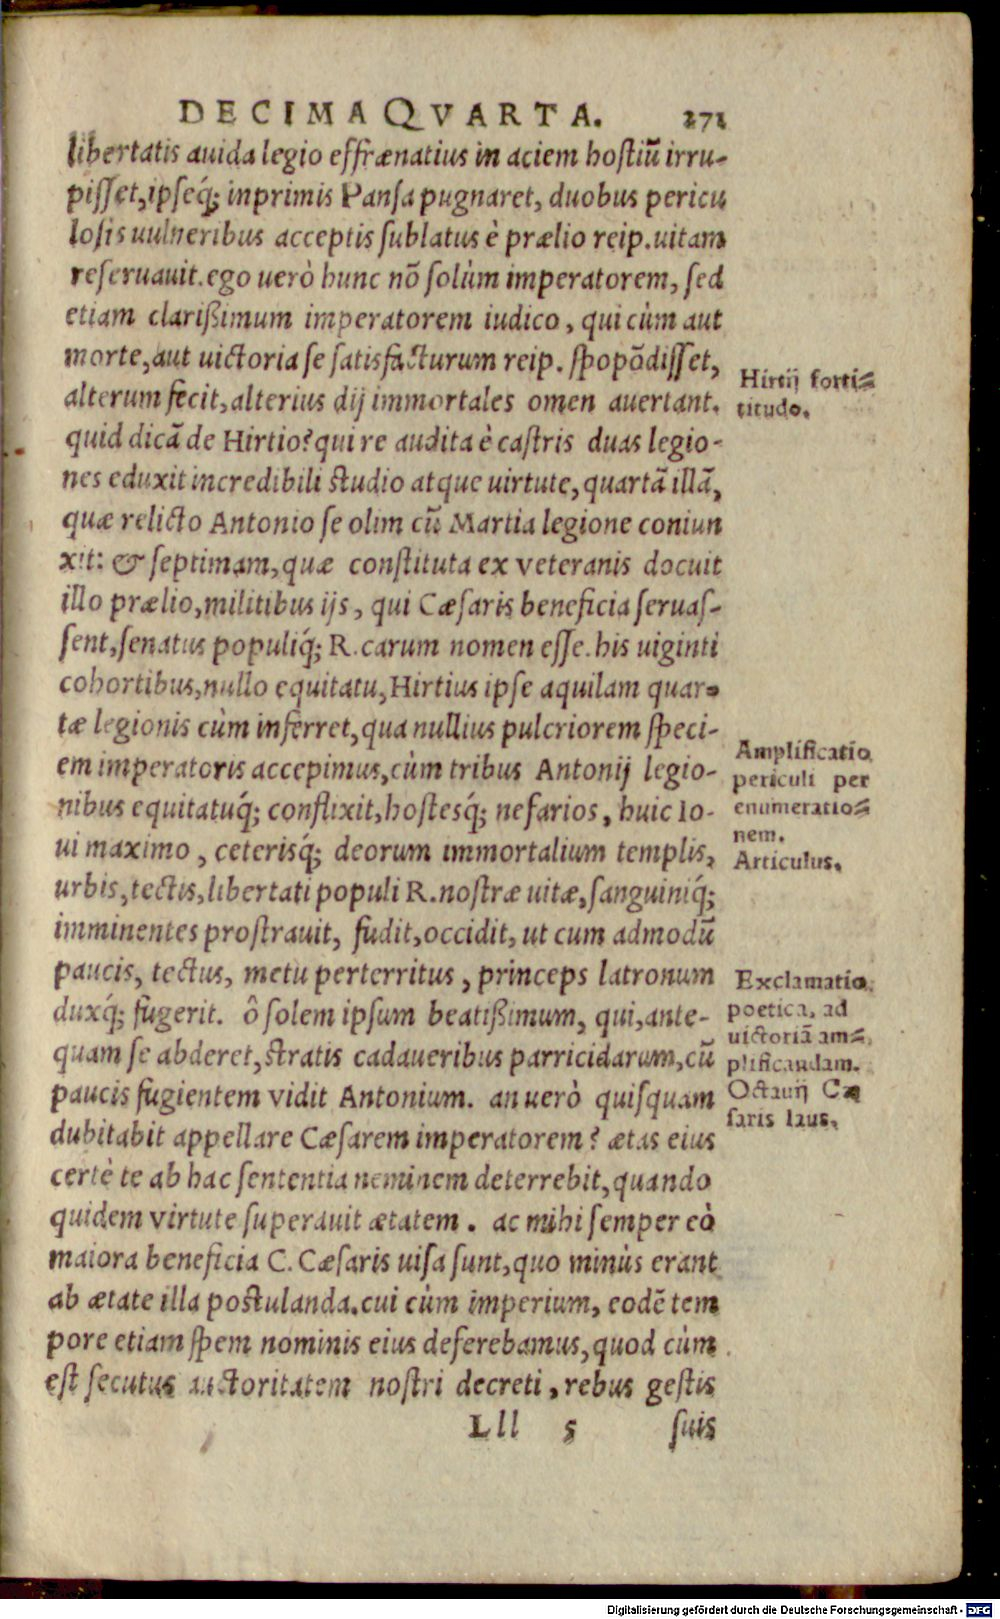 DECIMAQVARTA. 271
libertatis auida legio effrænatius in aciem hostiũ irru-
pisset, ipseq́; inprimis Pansa pugnaret, duobus pericu
losis uulneribus acceptis sublatus è prælio reip. uitam
reseruauit. ego uerò hunc nõ solùm imperatorem, sed
etiam clarißimum imperatorem iudico, qui cùm aut
morte, aut uictoria se satisfacturum reip. spopõdisset,
alterum fecit, alterius dij immortales omen auertant.
quid dicã de Hirtio? qui re audita è castris duas legio-
nes eduxit incredibili studio atque uirtute, quartã illã,
quæ relicto Antonio se olim cũ Martia legione coniun
xit: & septimam, quæ constituta ex veteranis docuit
illo prælio, militibus ijs, qui Cæsaris beneficia seruas-
sent, senatus populiq́; R. carum nomen esse. his uiginti
cohortibus, nullo equitatu, Hirtius ipse aquilam quar-
tæ legionis cùm inferret, qua nullius pulcriorem speci-
em imperatoris accepimus, cùm tribus Antonij legio-
nibus equitatuq́; conflixit, hostesq́; nefarios, huic Io-
ui maximo, ceterisq́; deorum immortalium templis,
urbis, tectis, libertati populi R. nostræ uitæ, sanguiniq́;
imminentes prostrauit, fudit, occidit, ut cum admodũ
paucis, tectus, metu perterritus, princeps latronum
duxq́; fugerit. ô solem ipsum beatißimum, qui, ante-
quam se abderet, stratis cadaueribus parricidarum, cũ
paucis fugientem vidit Antonium. an uerò quisquam
dubitabit appellare Cæsarem imperatorem? ætas eius
certè te ab hac sententia neminem deterrebit, quando
quidem virtute superauit ætatem. ac mihi semper eò
maiora beneficia C. Cæsaris uisa sunt, quo minùs erant
ab ætate illa postulanda. cui cùm imperium, eodẽ tem
pore etiam spem nominis eius deferebamus, quod cùm
est secutus auctoritatem nostri decreti, rebus gestis
Lll 5 suis
Hirtij forti=
titudo.
Amplificatio
periculi per
enumeratio=
nem.
Articulus.
Exclamatio
poetica, ad
uictoriã am=
plificandam.
Octauij Cæ
saris laus.
Digitalisierung gefördert durch die Deutsche Forschungsgemeinschaft - DFG